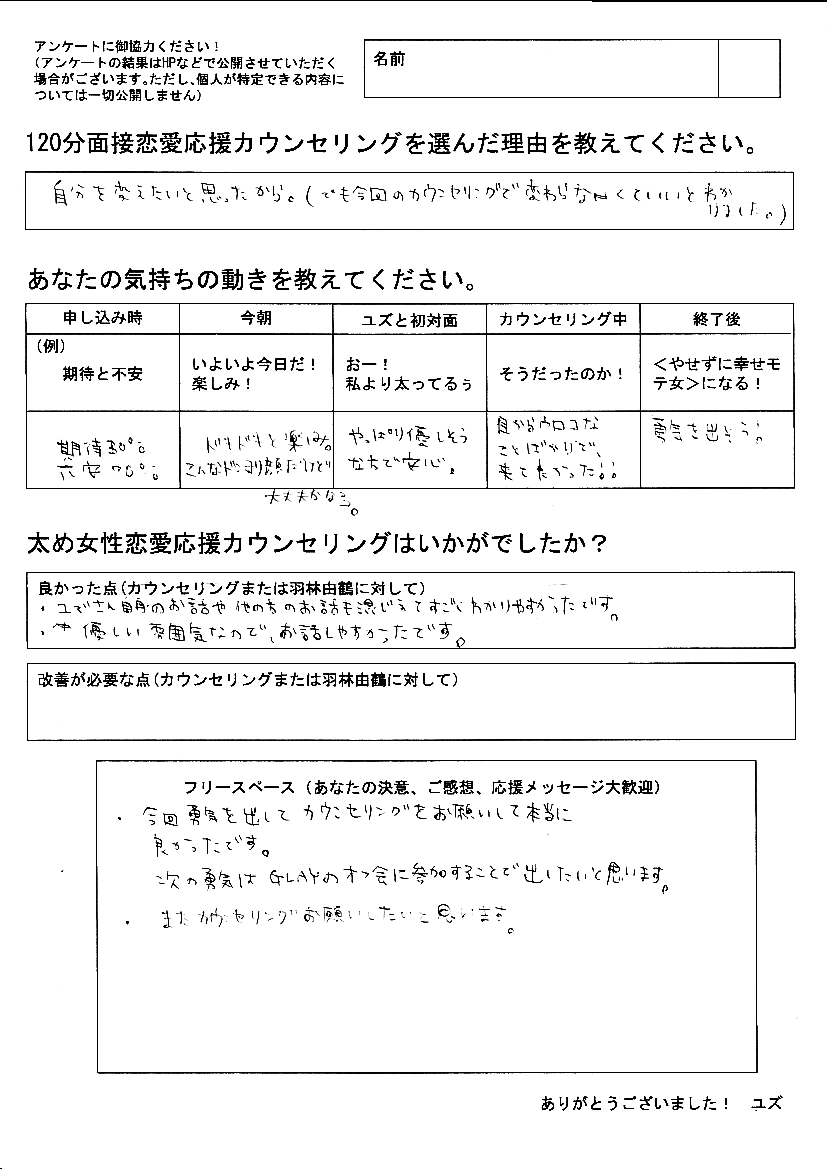 アンケートに御協力ください！
（アンケートの結果はHPなどで公開させていただく
場合がございます。ただし、個人が特定できる内容に
ついては一切公開しません）
名前
120分面接恋愛応援カウンセリングを選んだ理由を教えてください。
自分を変えたいと思ったから。（でも今回のカウンセリングで変わらなくていいとわか
りました。）
あなたの気持ちの動きを教えてください。
申し込み時 今朝 ユズと初対面 カウンセリング中 終了後
（例）
期待と不安
いよいよ今日だ！
楽しみ！
おー！
私より太ってるぅ
そうだったのか！
＜やせずに幸せモ
テ女＞になる！
期待30%
不安70%
ドキドキと楽しみ。
こんなドンヨリ顔だけど
大丈夫かなぁ。
やっぱり優しそう
な方で安心。
目からウロコな
ことばかりで、
来て良かった!!
勇気を出そう!
太め女性恋愛応援カウンセリングはいかがでしたか？
良かった点（カウンセリングまたは羽林由鶴に対して）
・ユズさん自身のお話や他の方のお話も混じえてすごくわかりやすかったです。
・優しい雰囲気なので、お話しやすかったです。
改善が必要な点（カウンセリングまたは羽林由鶴に対して）
フリースペース（あなたの決意、ご感想、応援メッセージ大歓迎）
・今回勇気を出してカウンセリングをお願いして本当に
良かったです。
次の勇気はGLAYのオフ会に参加することで出したいと思います。
・またカウンセリングお願いしたいと思います。
ありがとうございました！ ユズ